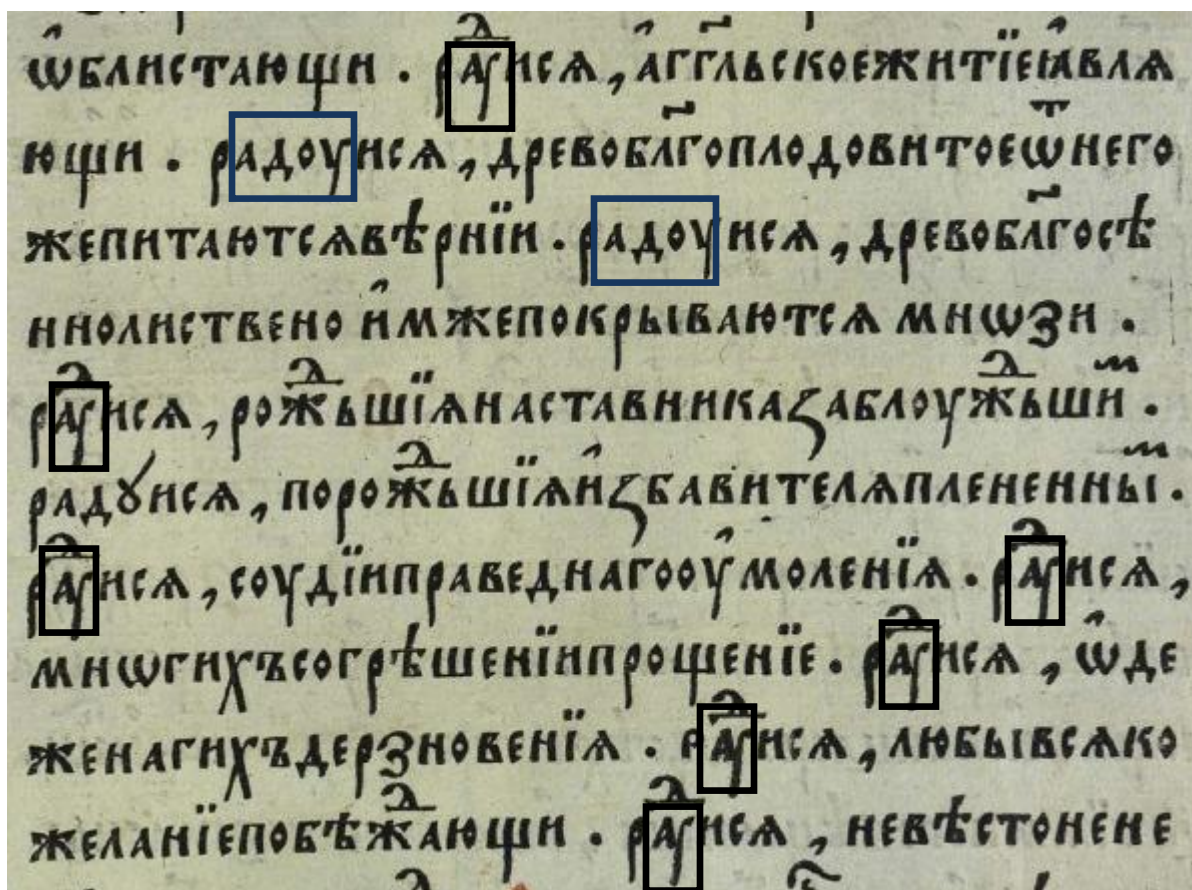 ѡ҆блистающи . раⷣуисѧ , а҆гг҃льскоежитїеꙗ҆влѧ
ющи . радоуисѧ , древоблг҃оплодовитоеѿнего
жепитаютсѧвѣрнїи . радоуисѧ , древоблг҃осѣ
ннолиствено и҆мжепокрываютсѧ мнѡзи .
раⷣуисѧ , рожⷣьшїѧнаставниказаблоужⷣьшиⷨ .
радꙋисѧ , порожⷣьшїѧи҆збавителѧплененныⷨ .
раⷣуисѧ , соудїиправеднагооу҆моленїѧ . раⷣуисѧ ,
мнѡгихъсогрѣшенїипрощенїе . раⷣуисѧ , ѡ҆де
женагихъдерзновенїѧ . раⷣуисѧ , любывсѧко
желанїепобѣжⷣающи . раⷣуисѧ , невѣстонене